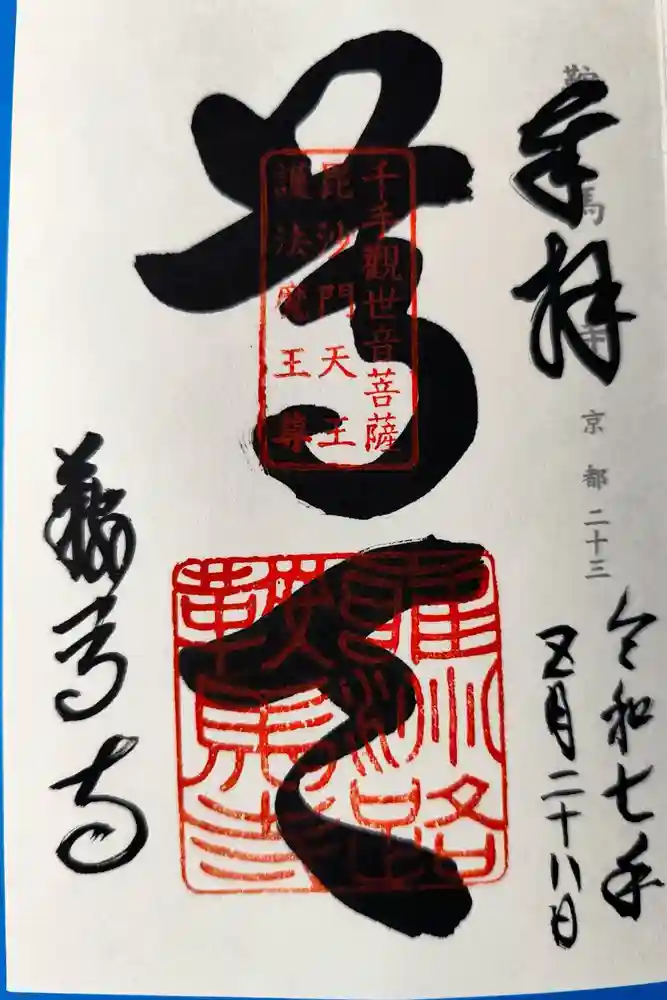 奉拝
鞍馬寺
京都二十三
令和七年
五月二十八日
尊天
千手觀世音菩薩
毘沙門天王
護法魔王尊
雍州路
鞍馬寺
鞍馬寺